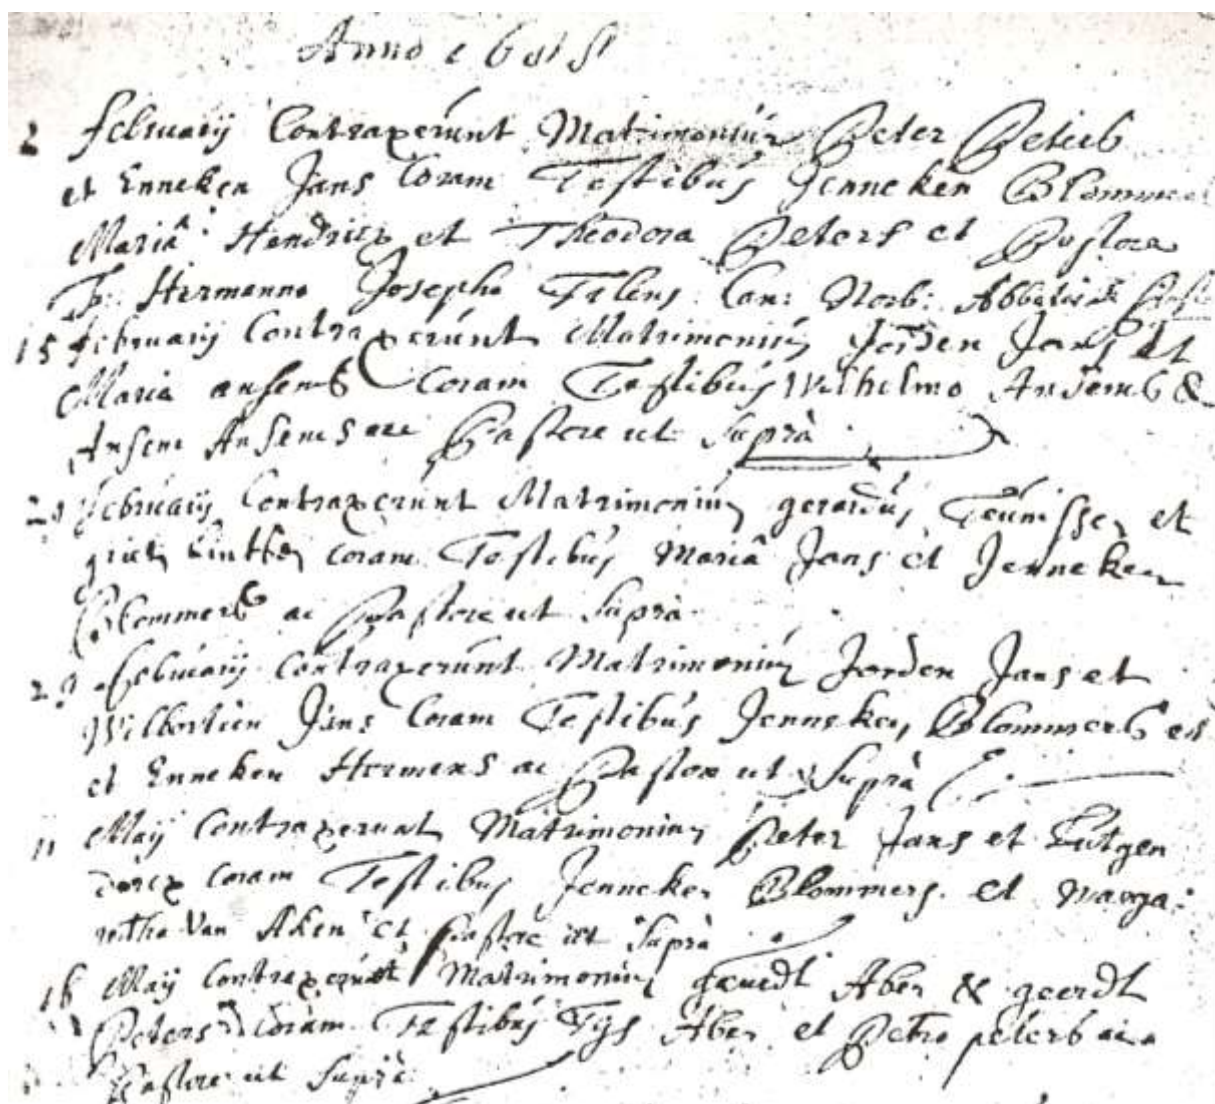 Anno
2 februarij Contraxerunt Matrimoniũ Peter Peters
et Enneken Jans Coram Testibus Jenneken Blommers
Mariâ Hendricx et Theodora Peters et Pastore
Hermanno Josepho Can: Norb:
15 februarij Contraxerunt Matrimoniũ Jorden Jans et
Maria ansems Coram Testibus Wilhelmo Ansems &
Ansem Ansems ac Pastore ut Suprà
februarij Contraxerunt Matrimoniũ gerardus Teunissen et
griet coram Testibus Mariâ Jans et Jenneken
Blommers ac Pastore ut Suprà
februarij Contraxerunt Matrimoniũ Jorden Jans et
Wilbortien Jans Coram Testibus Jenneken Blommers
et Enneken Hermens ac Pastore ut Suprà
11 Maij Contraxerunt Matrimoniũ Peter Jans et
dorcx Coram Testibus Jenneken Blommers et Marga:
retha Van Aken et Pastore ut Suprà
16 Maij Contraxerunt Matrimoniũ Aben & geerdt
Peters Coram Testibus Tijs Aben et Petro peters
Pastore ut Suprà